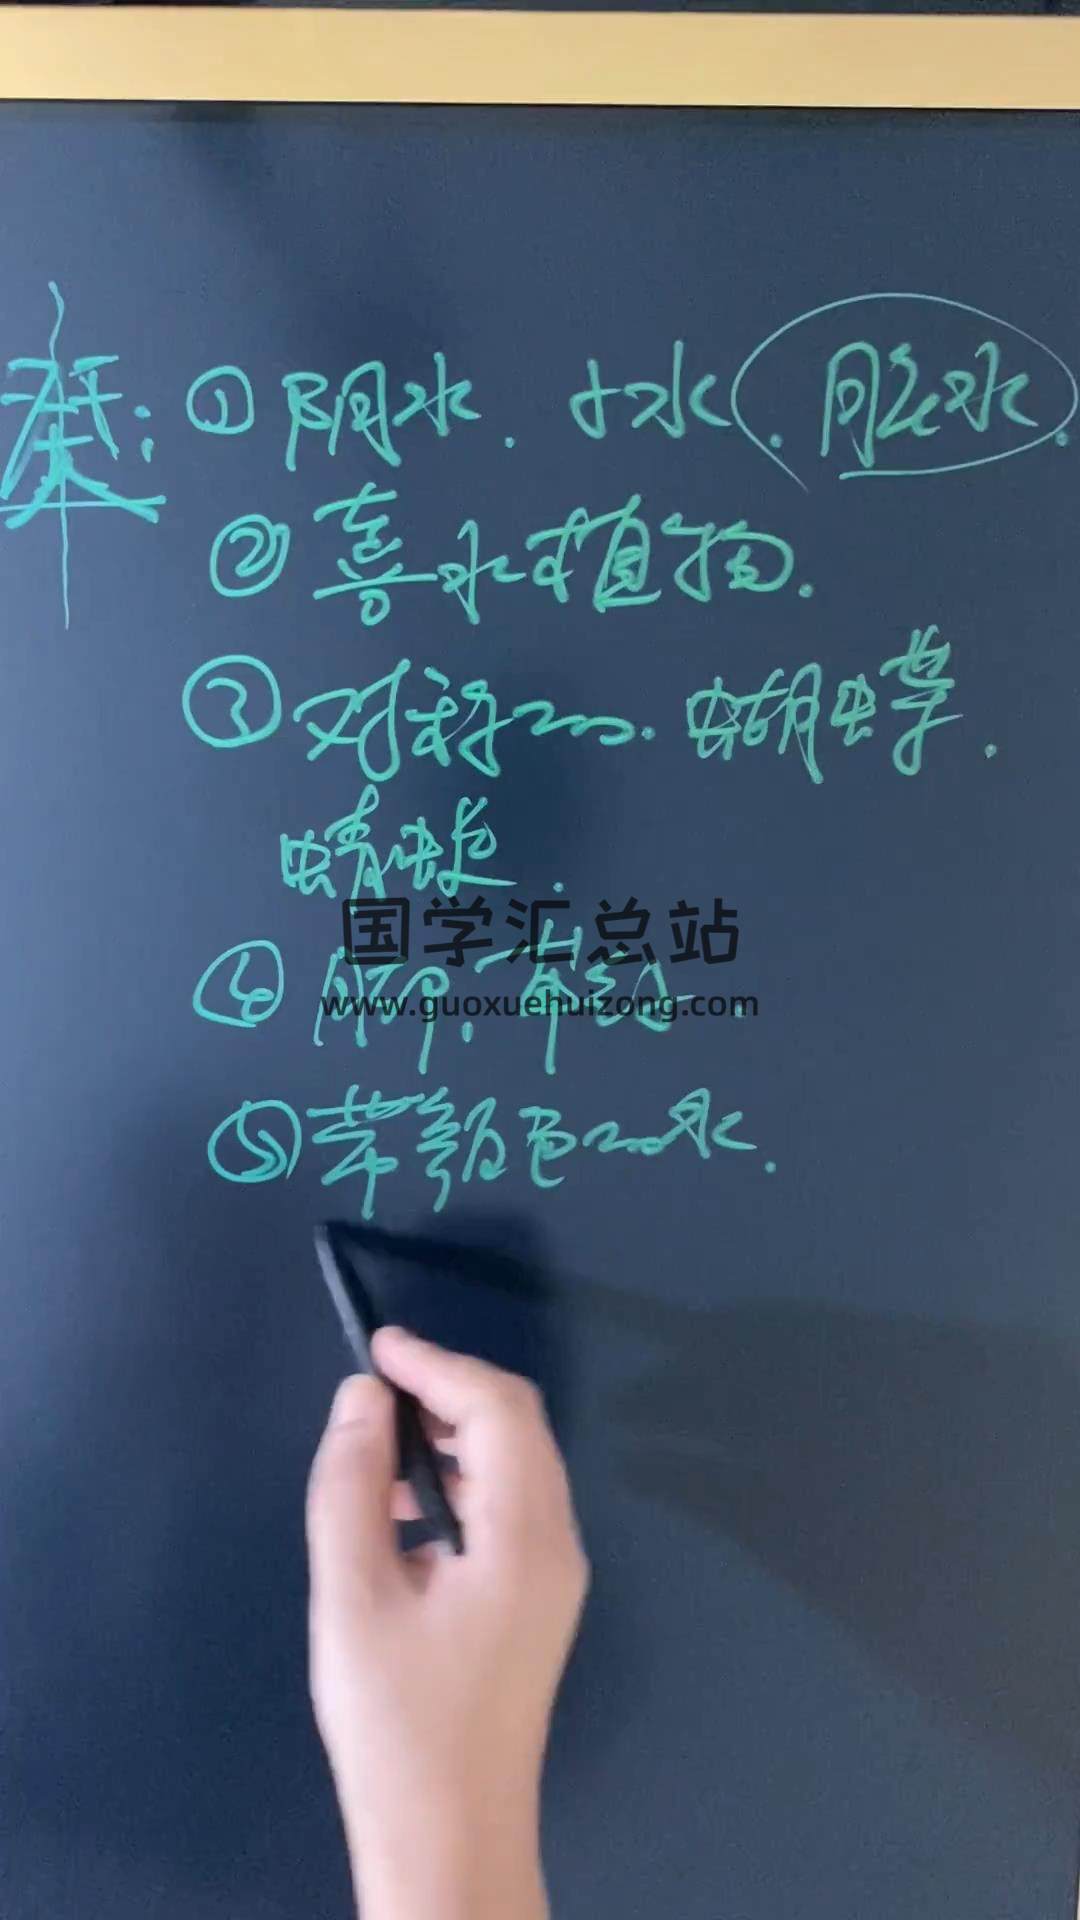 癸：①阴水．小水．脏水．
②喜水植物．
③对称的．蝴蝶．
蜻蜓．
国学汇总站
④脚．奔跑．
www.guoxuehuizong.com
⑤带颜色的水．